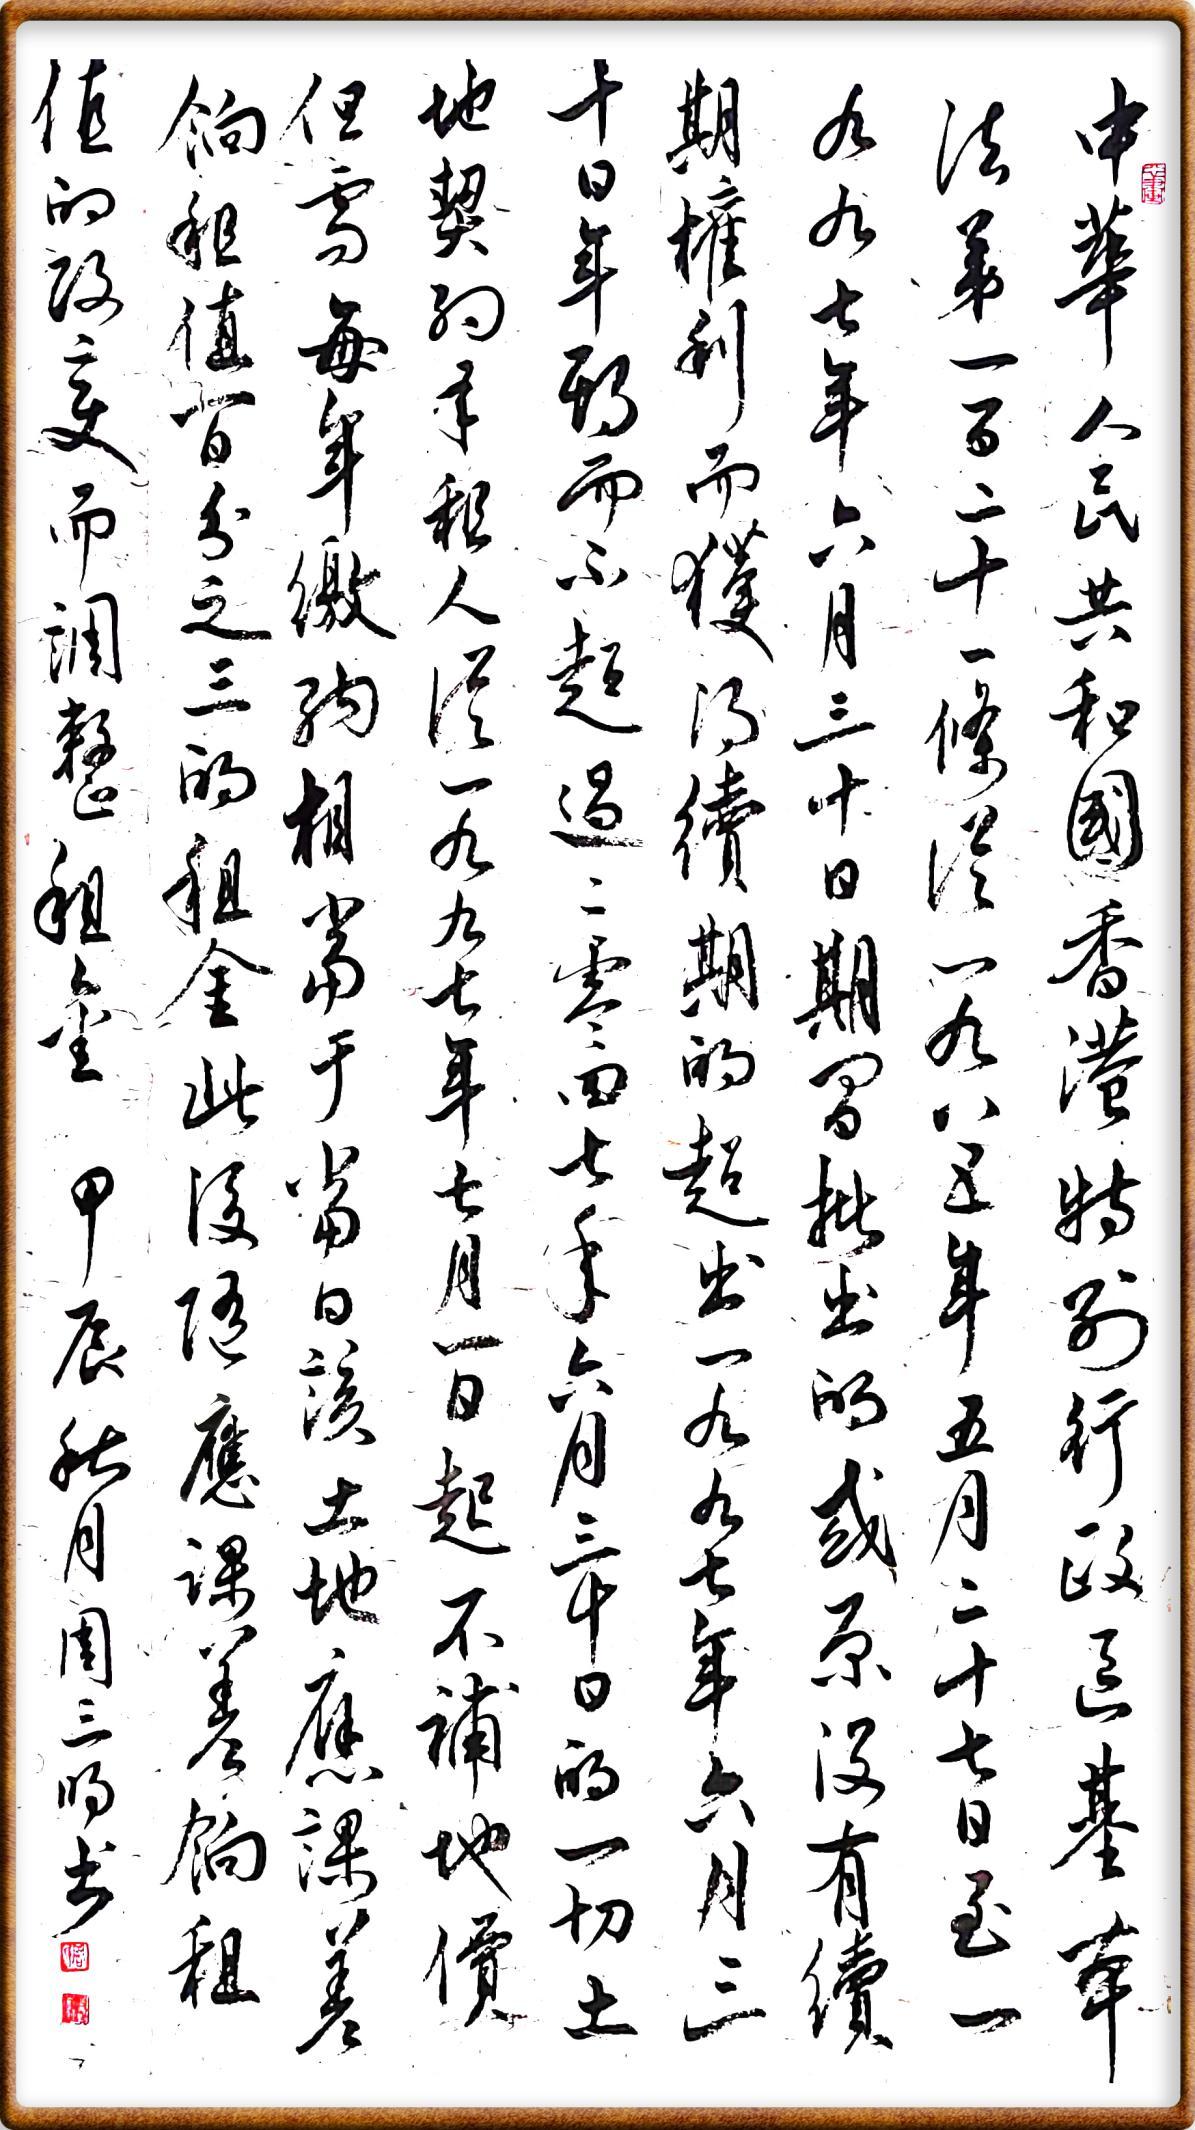 中華人民共和國香港特別行政區基本
法第一百二十一條從一九八五年五月二十七日至一
九九七年六月三十日期間批出的或原沒有續
期權利而獲得續期的超出一九九七年六月三
十日年期而不超過二零四七年六月三十日的一切土
地契約承租人從一九九七年七月一日起不補地價
但需每年繳納相當于當日該土地應課差
餉租值百分之三的租金此後隨應課差餉租
值的改變而調整租金 甲辰秋月周三明書